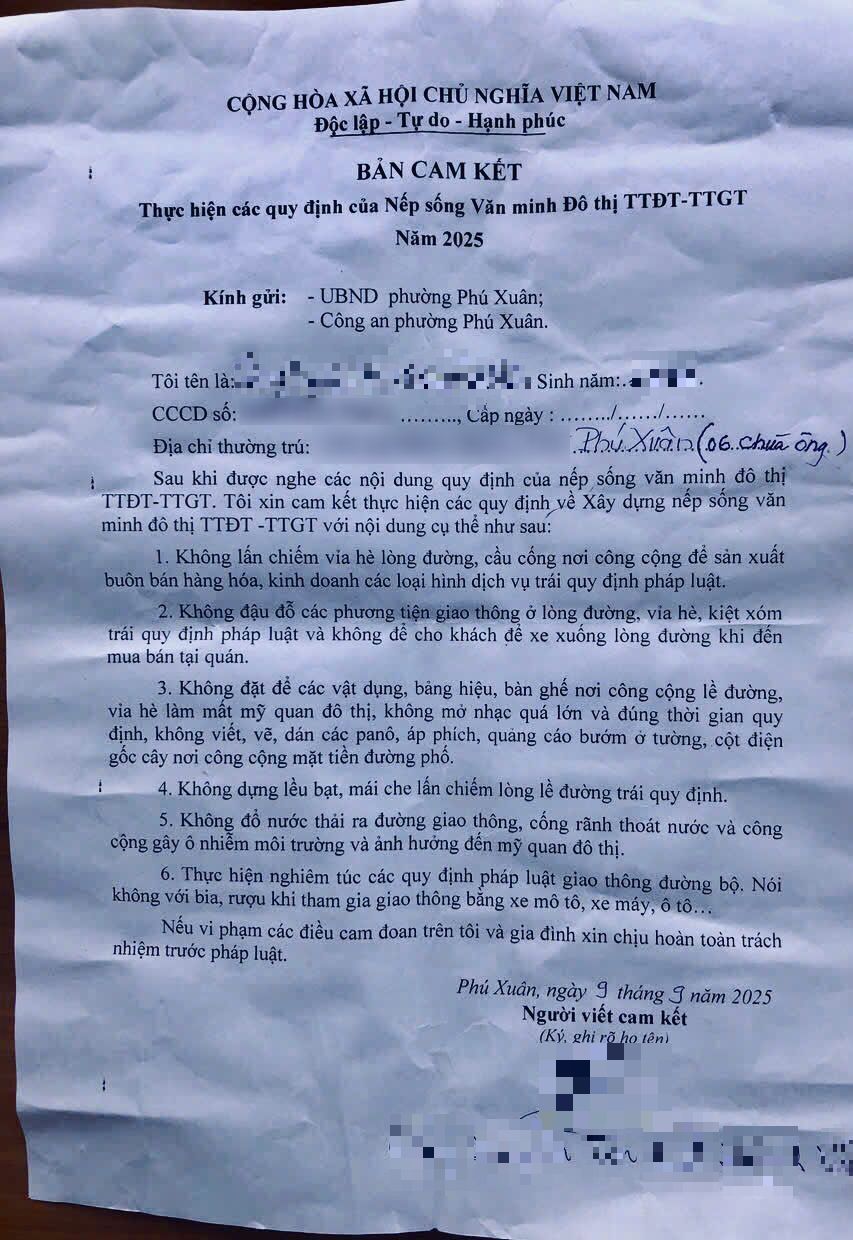 CỘNG HÒA XÃ HỘI CHỦ NGHĨA VIỆT NAM
Độc lập - Tự do - Hạnh phúc
BẢN CAM KẾT
Thực hiện các quy định của Nếp sống Văn minh Đô thị TTĐT-TTGT
Năm 2025
Kính gửi: - UBND phường Phú Xuân;
- Công an phường Phú Xuân.
Tôi tên là: Sinh năm:
CCCD số: ........., Cấp ngày : ......../....../......
Địa chỉ thường trú: Phú Xuân (06. chùa ông.)
Sau khi được nghe các nội dung quy định của nếp sống văn minh đô thị
TTĐT-TTGT. Tôi xin cam kết thực hiện các quy định về Xây dựng nếp sống văn
minh đô thị TTĐT -TTGT với nội dung cụ thể như sau:
1. Không lấn chiếm vỉa hè lòng đường, cầu cống nơi công cộng để sản xuất
buôn bán hàng hóa, kinh doanh các loại hình dịch vụ trái quy định pháp luật.
2. Không đậu đỗ các phương tiện giao thông ở lòng đường, vỉa hè, kiệt xóm
trái quy định pháp luật và không để cho khách để xe xuống lòng đường khi đến
mua bán tại quán.
3. Không đặt để các vật dụng, bảng hiệu, bàn ghế nơi công cộng lề đường,
vỉa hè làm mất mỹ quan đô thị, không mở nhạc quá lớn và đúng thời gian quy
định, không viết, vẽ, dán các panô, áp phích, quảng cáo bướm ở tường, cột điện
gốc cây nơi công cộng mặt tiền đường phố.
4. Không dựng lều bạt, mái che lấn chiếm lòng lề đường trái quy định.
5. Không đổ nước thải ra đường giao thông, cống rãnh thoát nước và công
cộng gây ô nhiễm môi trường và ảnh hưởng đến mỹ quan đô thị.
6. Thực hiện nghiêm túc các quy định pháp luật giao thông đường bộ. Nói
không với bia, rượu khi tham gia giao thông bằng xe mô tô, xe máy, ô tô...
Nếu vi phạm các điều cam đoan trên tôi và gia đình xin chịu hoàn toàn trách
nhiệm trước pháp luật.
Phú Xuân, ngày 9 tháng 9 năm 2025
Người viết cam kết
(Ký, ghi rõ họ tên)